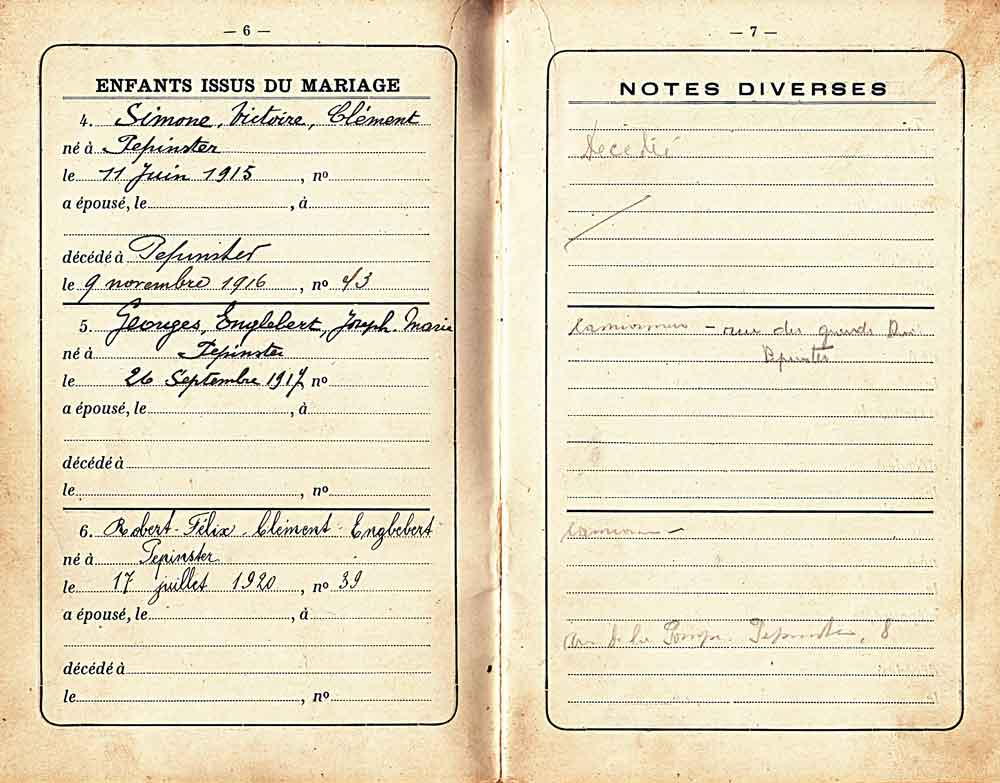 — 6 —
ENFANTS ISSUS DU MARIAGE
4. Simone, Victoire, Clément
né à Pepinster
le 11 Juin 1915, nº
a épousé, le, à
décédé à Pepinster
le 9 novembre 1916, nº 43
5. Georges, Englebert, Joseph. Marie
né à Pepinster
le 26 Septembre 1917, nº
a épousé, le, à
décédé à
le, nº
6. Robert-Félix-Clément-Englebert
né à Pepinster
le 17 juillet 1920, nº 39
a épousé, le, à
décédé à
le, nº
— 7 —
NOTES DIVERSES
Decedé
— rue des grands
Pepinster
Pepinster, 8